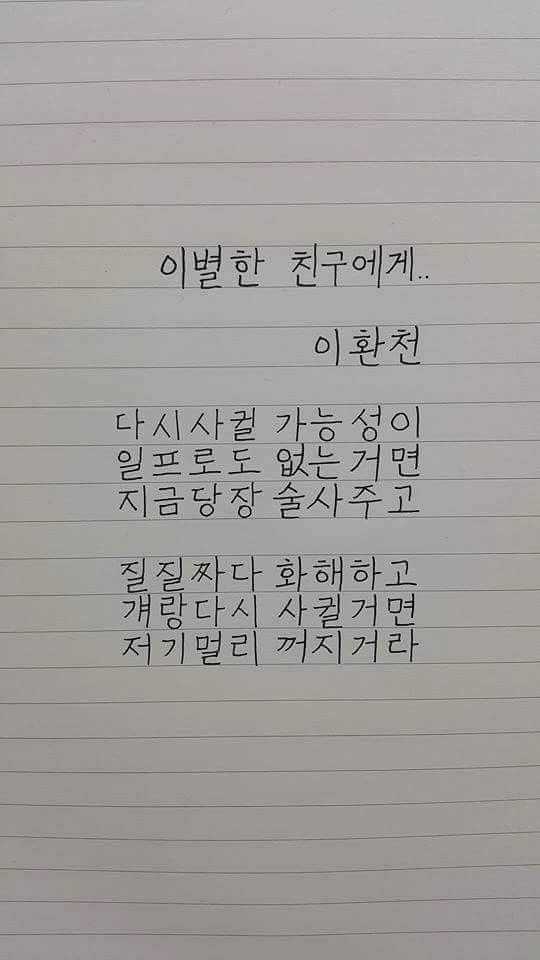 이별한 친구에게..
이환천
다시사귈 가능성이
일프로도 없는거면
지금당장 술사주고
질질짜다 화해하고
걔랑다시 사귈거면
저기멀리 꺼지거라